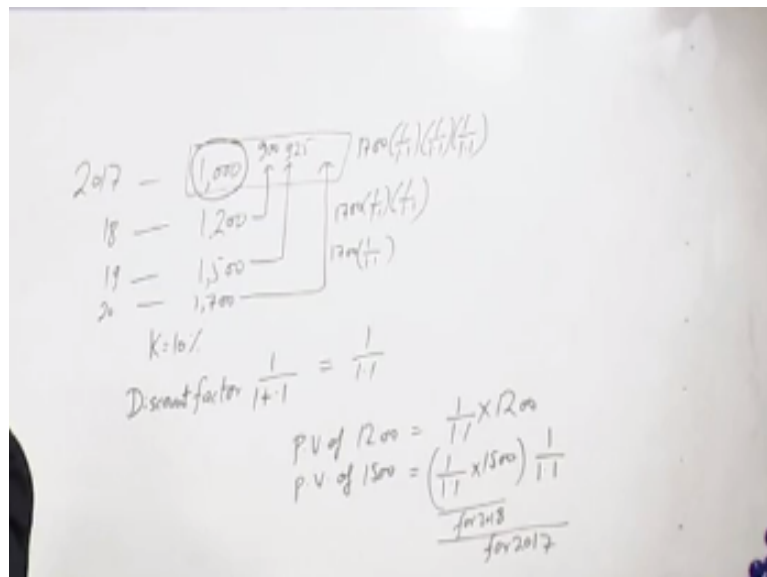 2017 — 1,000 900 925 1700(1/1.1)(1/1.1)(1/1.1)
18 — 1,200 1700(1/1.1)(1/1.1)
19 — 1,500 1700(1/1.1)
20 — 1,700
K=10%
Discount factor 1/1+.1 = 1/1.1
P.V of 1200 = 1/1.1 × 1200
P.V. of 1500 = (1/1.1 × 1500) 1/1.1
for 2018
for 2017